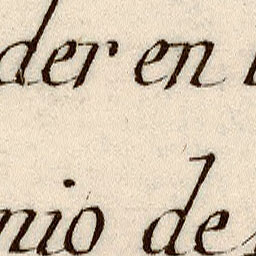 der en
nio de